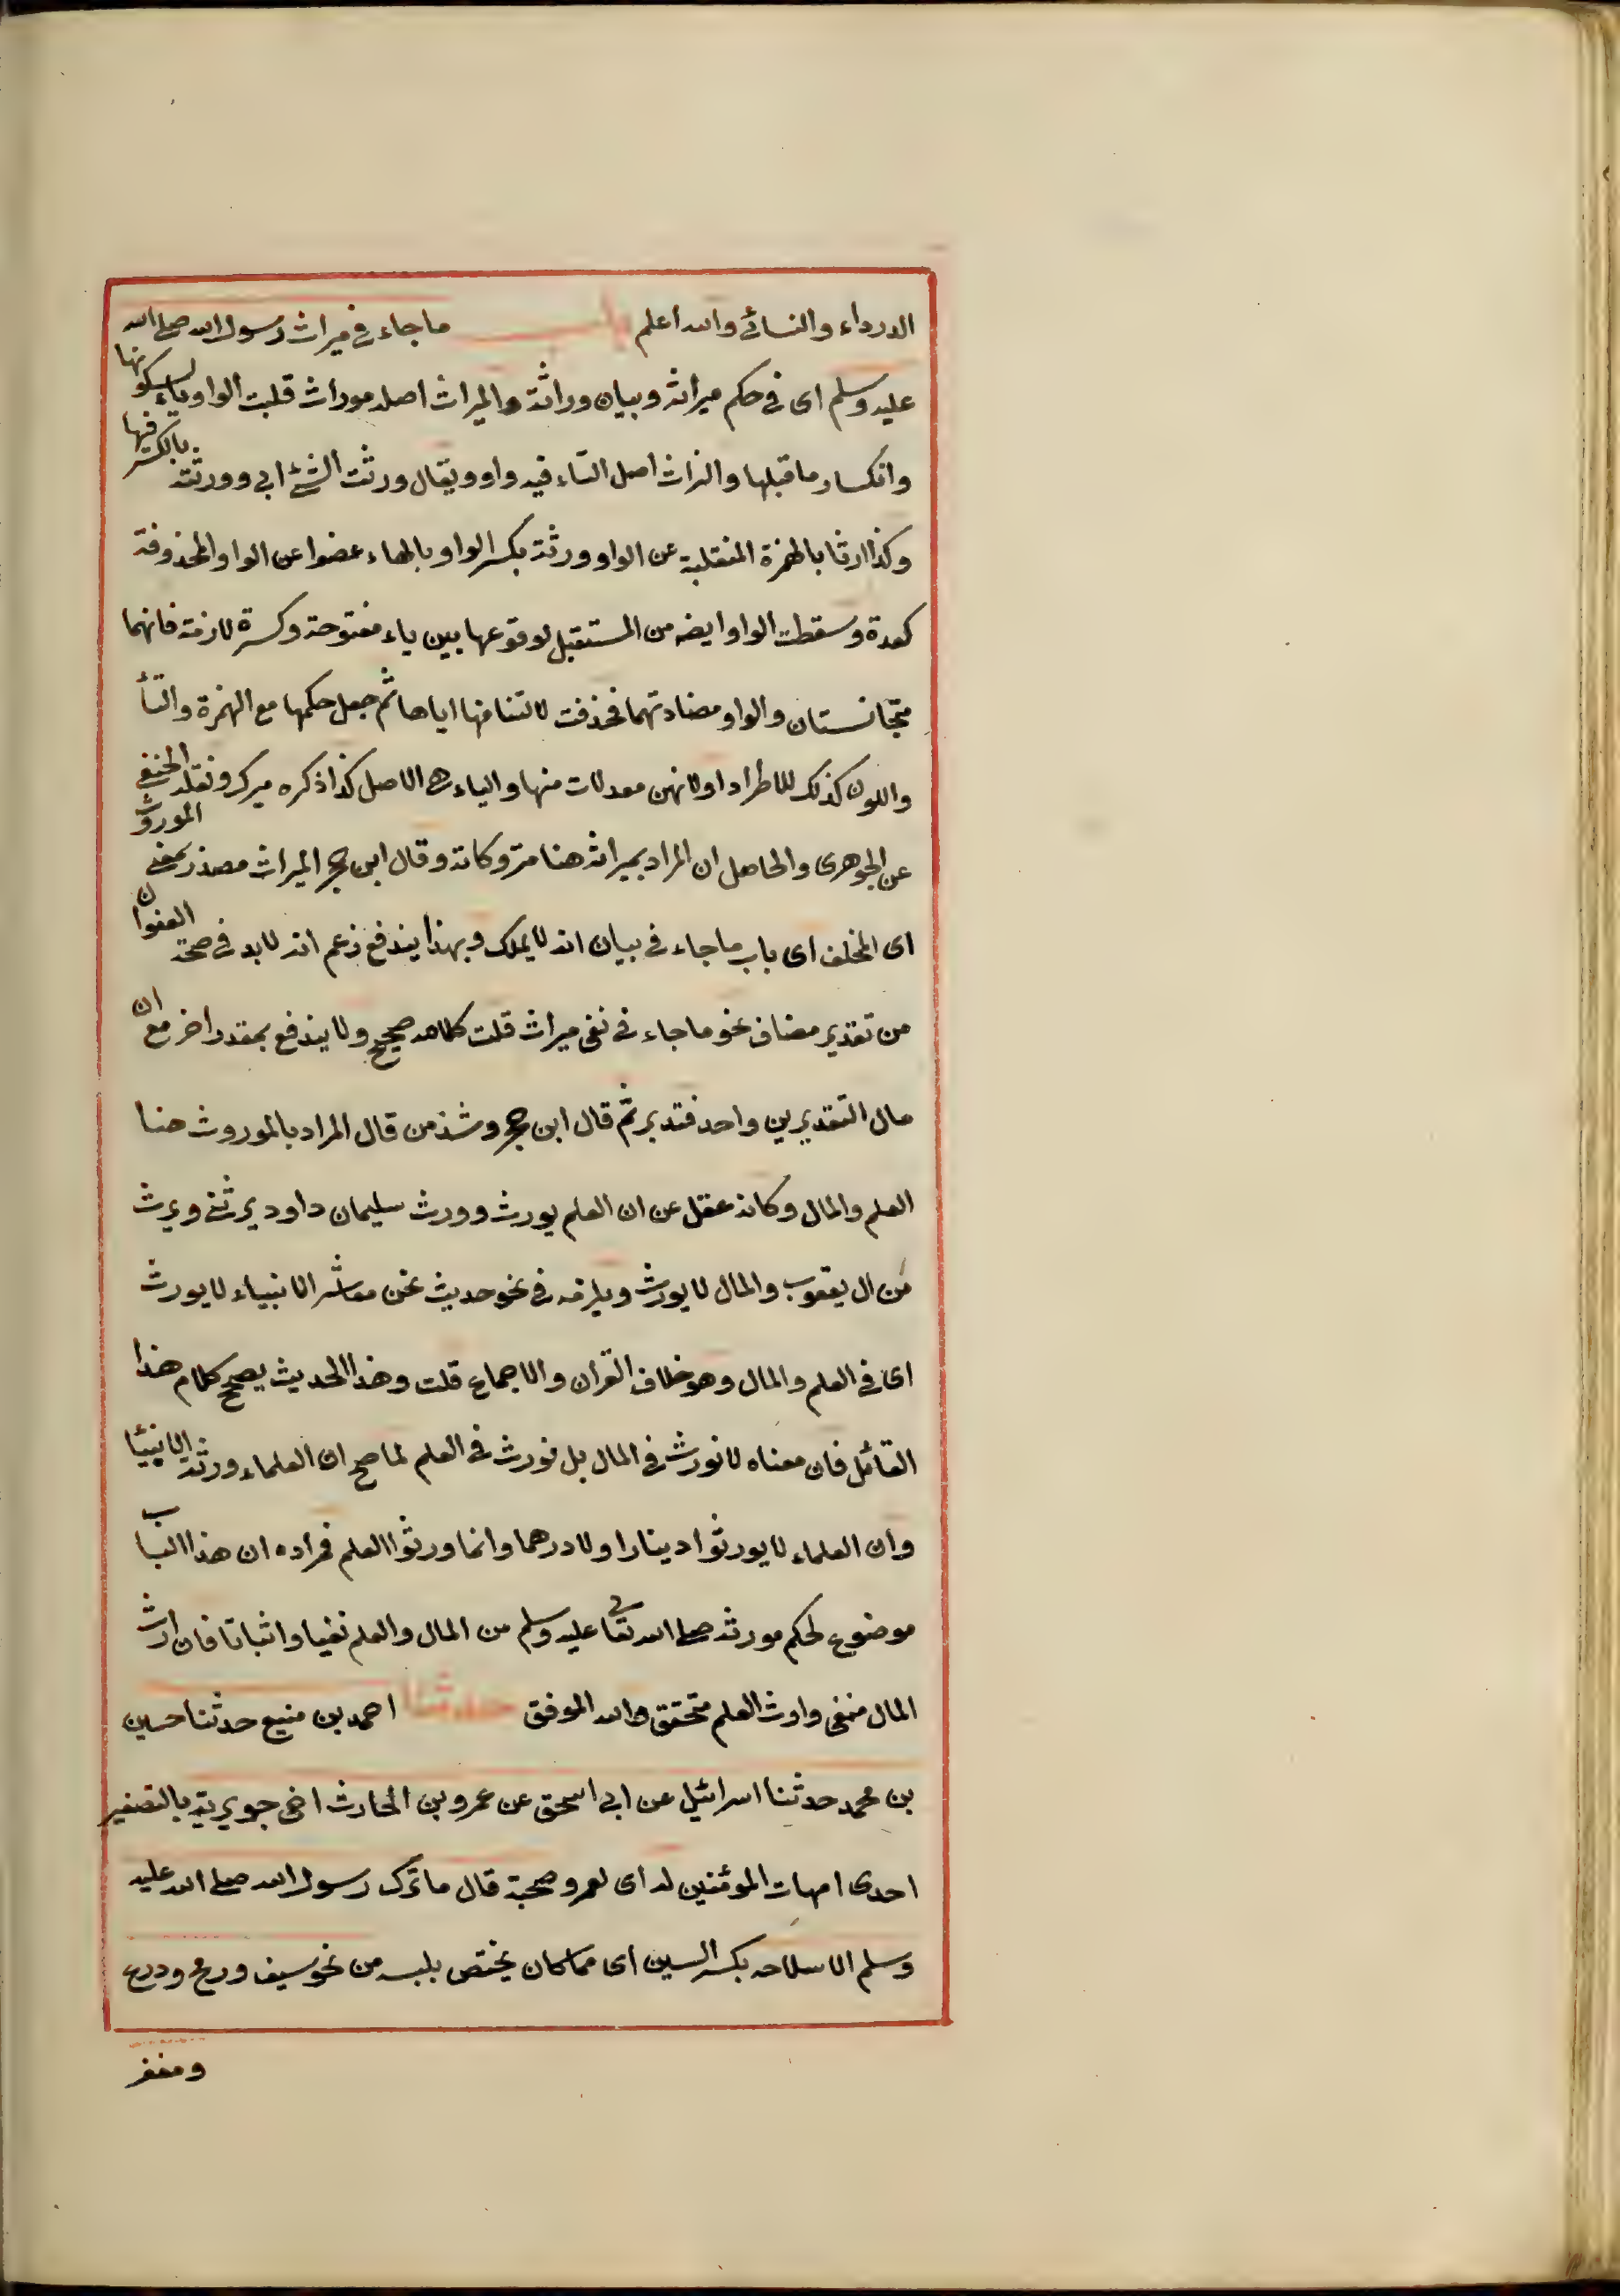 الدرداء والنسائي والله اعلم باب ما جاء في ميراث رسول الله صلى الله
عليه وسلم اى في حكم ميراثه وبيان وراثته والميراث اصله موراث قلبت الواو ياء لسكونها
وانكسار ما قبلها والتراث اصل التاء فيه واو ويقال ورثت الشئ ابي وورثته بالكسر فيها
وكذا ارثا بالهمزة المنقلبة عن الواو ورثة بكسر الواو بالهاء عضوا عن الواو المحذوفة
كعدة وسقطت الواو ايضه من المستقبل لوقوعها بين ياء مفتوحة وكسرة لازمة فانهما
متجانستان والواو مضادتهما فحذفت لاكتنافهما اياها ثم جعل حكمها مع الهمزة والتأ
والنون كذلك للاطراد اولانهن مبدلات منها والياء هى الاصل كذا ذكره ميرك ونقله الحنفي
عن الجوهرى والحاصل ان المراد بميراثه هنا متروكاته وقال ابن حجر الميراث مصدر بمعنى الموروث
اى المخلف اى باب ما جاء في بيان انه لايملك وبهذا يندفع زعم انه لابد في صحة العنوان
من تقدير مضاف نحو ما جاء في نفى ميراث قلت كلامه صحيح ولا يندفع بمقدر اخر مع ان
مال التقديرين واحد فتدبر ثم قال ابن حجر وشذ من قال المراد بالموروث هنا
العلم والمال وكانه عقل عن ان العلم يورث وورث سليمان داود يرثنى ويرث
من ال يعقوب والمال لا يورث ويلزمه في نحو حديث نحن معاشر الانبياء لا يورث
اى في العلم والمال وهو خلاف القران والاجماع قلت وهذا الحديث يصحح كلام هذا
القائل فان معناه لا نورث في المال بل نورث في العلم لما صح ان العلماء ورثة الانبيا
وان العلماء لا يورثوا دينارا ولا درهما وانما ورثوا العلم فمراده ان هذا الباب
موضوع لحكم مورثه صلى الله تعالى عليه وسلم من المال والعلم نفيا واثباتا فان ارث
المال منفى وارث العلم متحقق والله الموفق حدثنا احمد بن منيع حدثنا حسين
بن محمد حدثنا اسرائيل عن ابي اسحق عن عمرو بن الحارث اخى جويرية بالتصغير
احدى امهات المؤمنين له اى لعمرو صحبة قال ما ترك رسول الله صلى الله عليه
وسلم الا سلاحه بكسر السين اى مما كان يختص بلبسه من نحو سيف ورمح ودرع
ومغفر